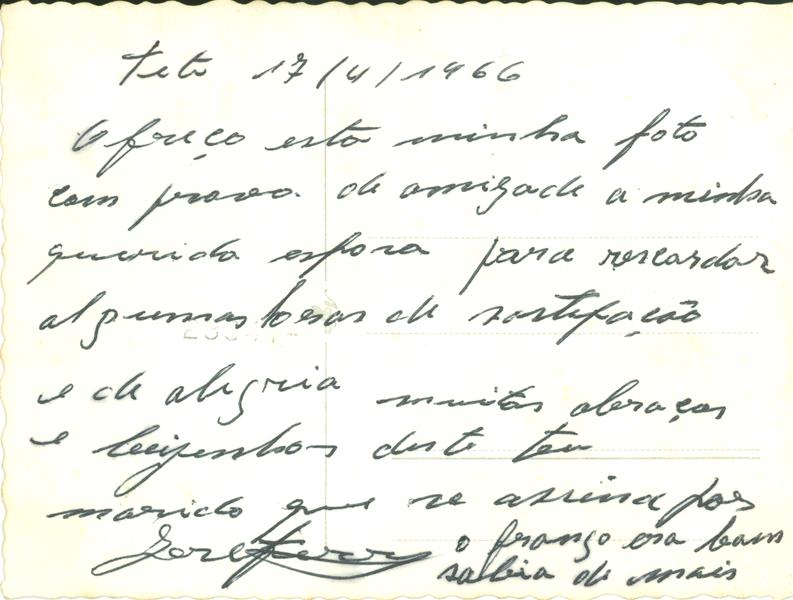 Tete 17/4/1966
Ofreço esta minha foto
com prova de amizade a minha
querida espora para rescardar
algumas horas de sastifação
e de alegria muitas abraços
e beijinhos deste teu
marido que se assina por
José
o frango era bom
sabia de mais